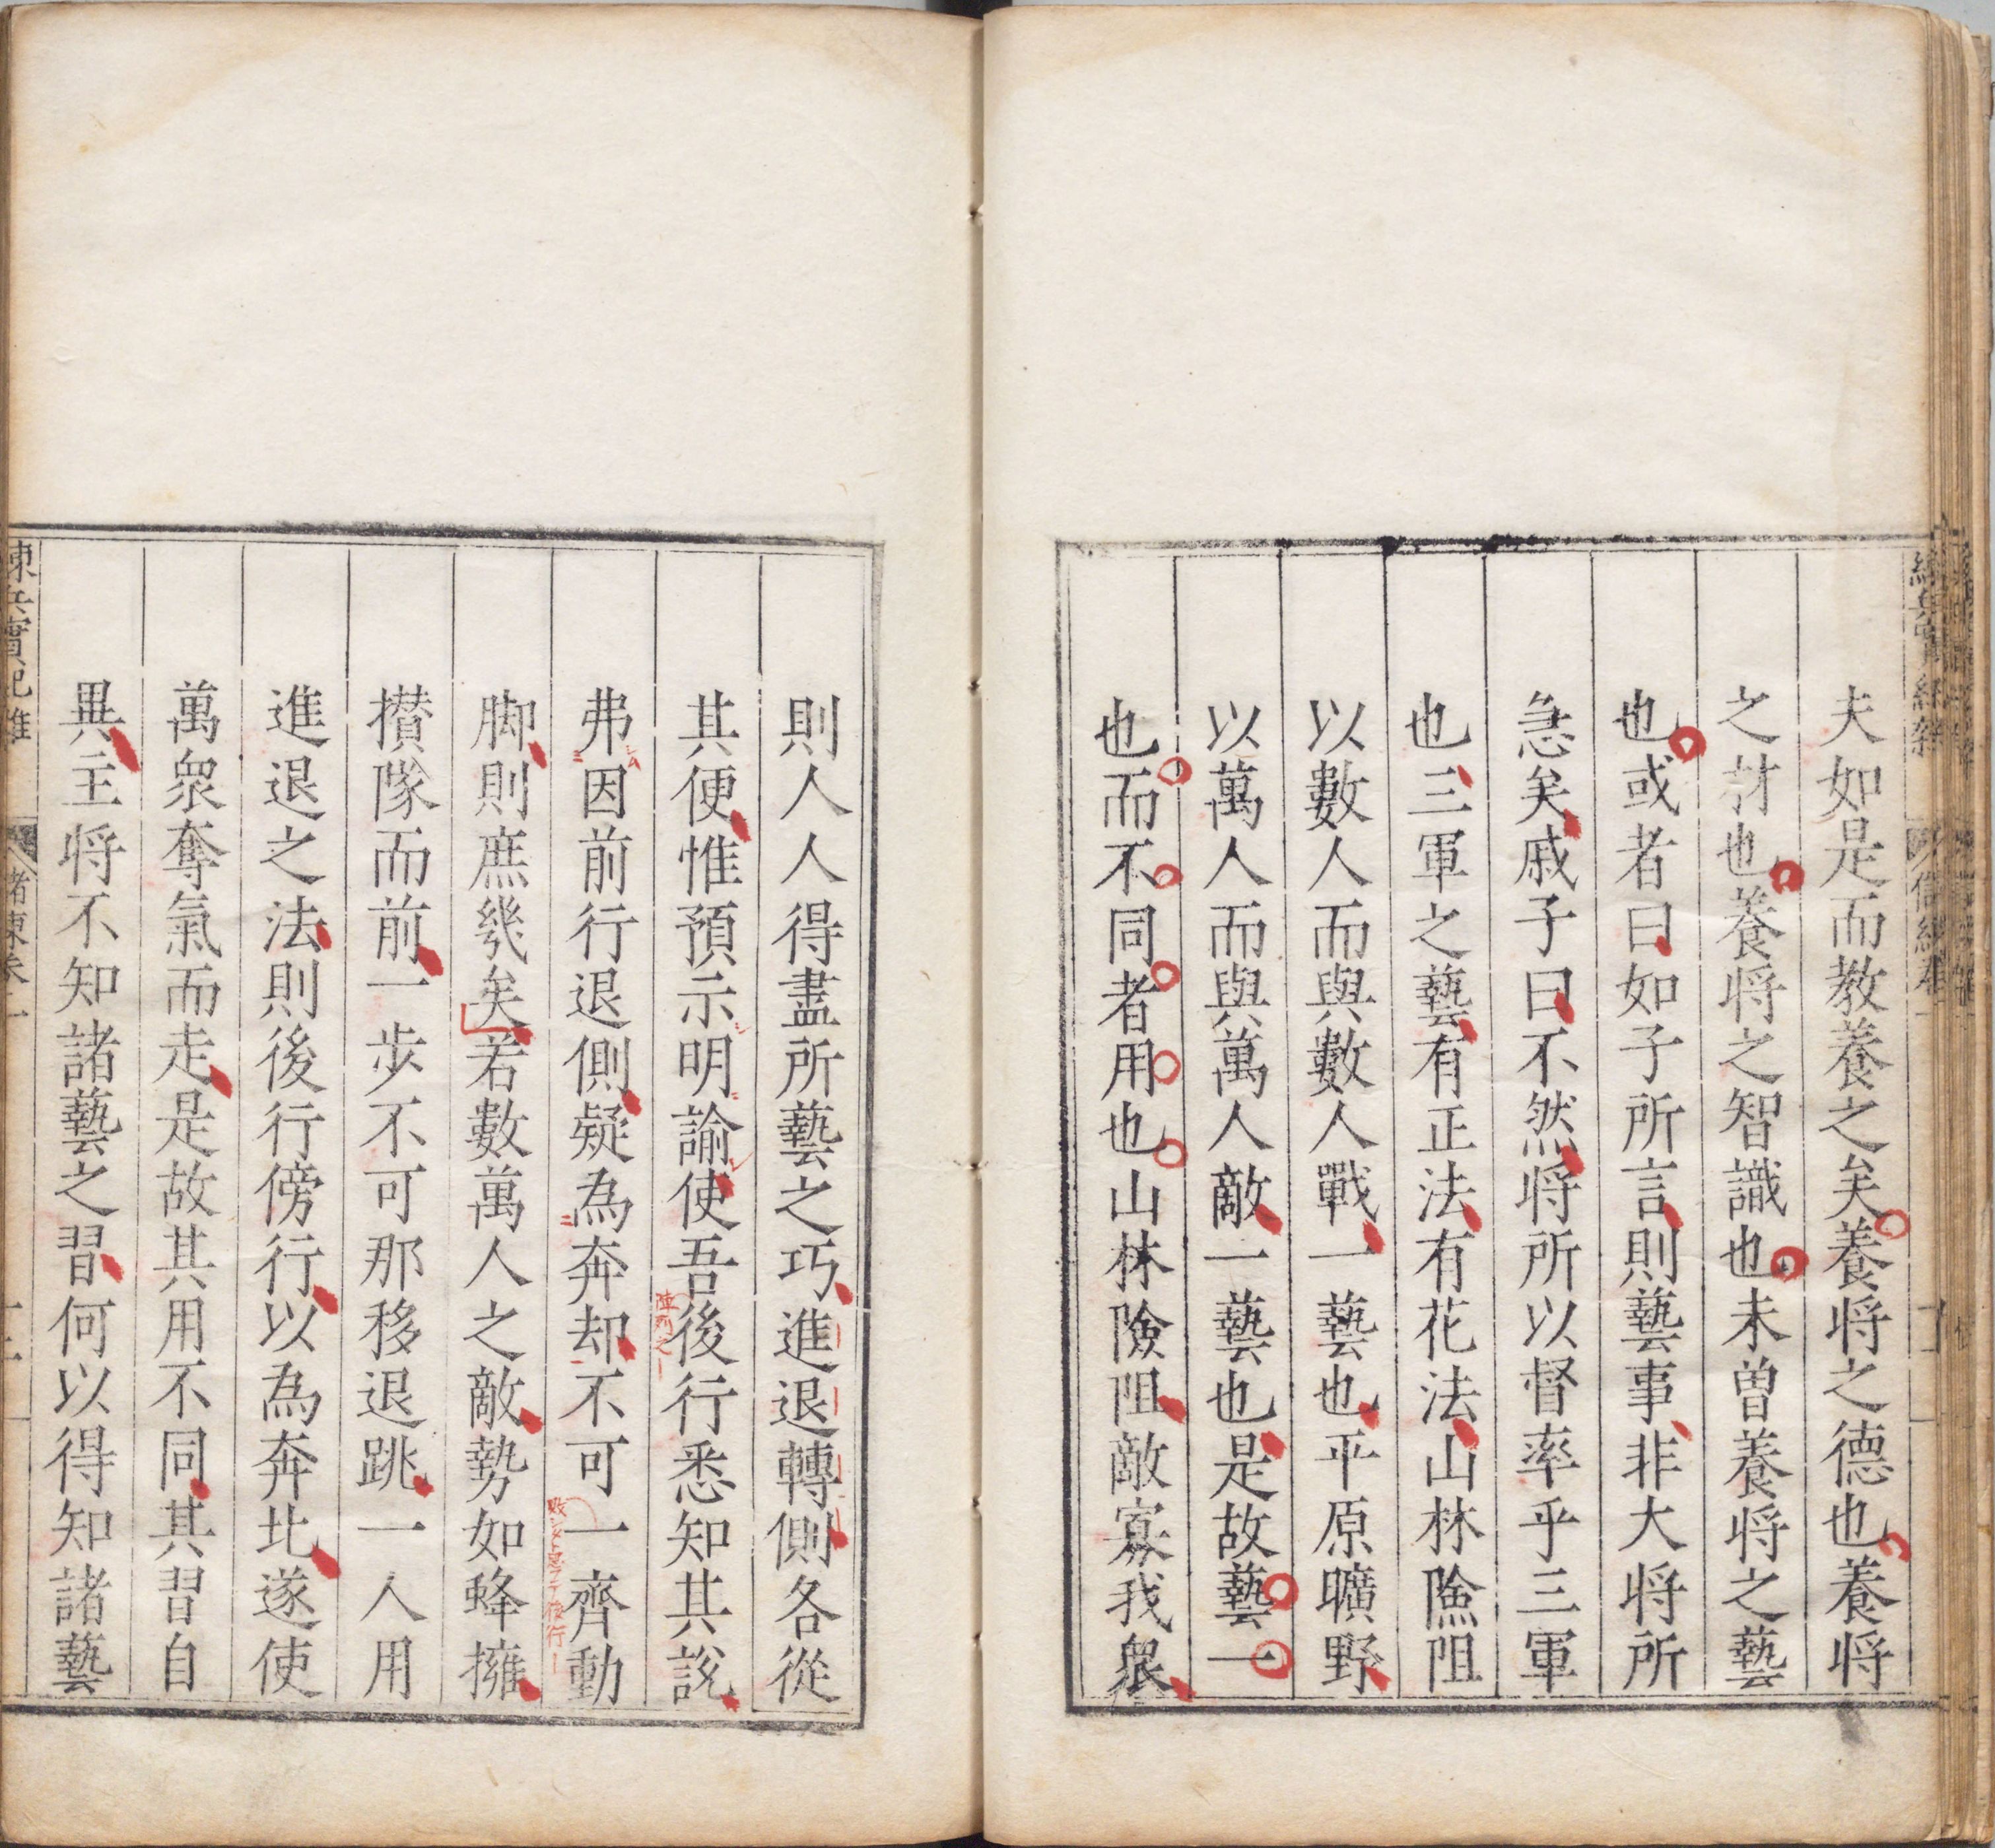 夫如是而教養之矣養将之德也養将
之材也養将之智識也未曽養将之藝
也或者曰如子所言則藝事非大将所
急矣戚子曰不然将所以督率乎三軍
也三軍之藝有正法有花法山林險阻
以數人而與數人戰一藝也平原曠野
以萬人而與萬人敵一藝也是故藝一
也而不同者用也山林險阻敵寡我衆
則人人得盡所藝之巧進退轉側各從
其便惟預示明諭使吾後行悉知其説
弗因前行退側疑為奔却不可一齊動
脚則庶幾矣若數萬人之敵勢如蜂擁
攅隊而前一步不可那移退跳一人用
進退之法則後行傍行以為奔北遂使
萬衆奪氣而走是故其用不同其習自
異主将不知諸藝之習何以得知諸藝